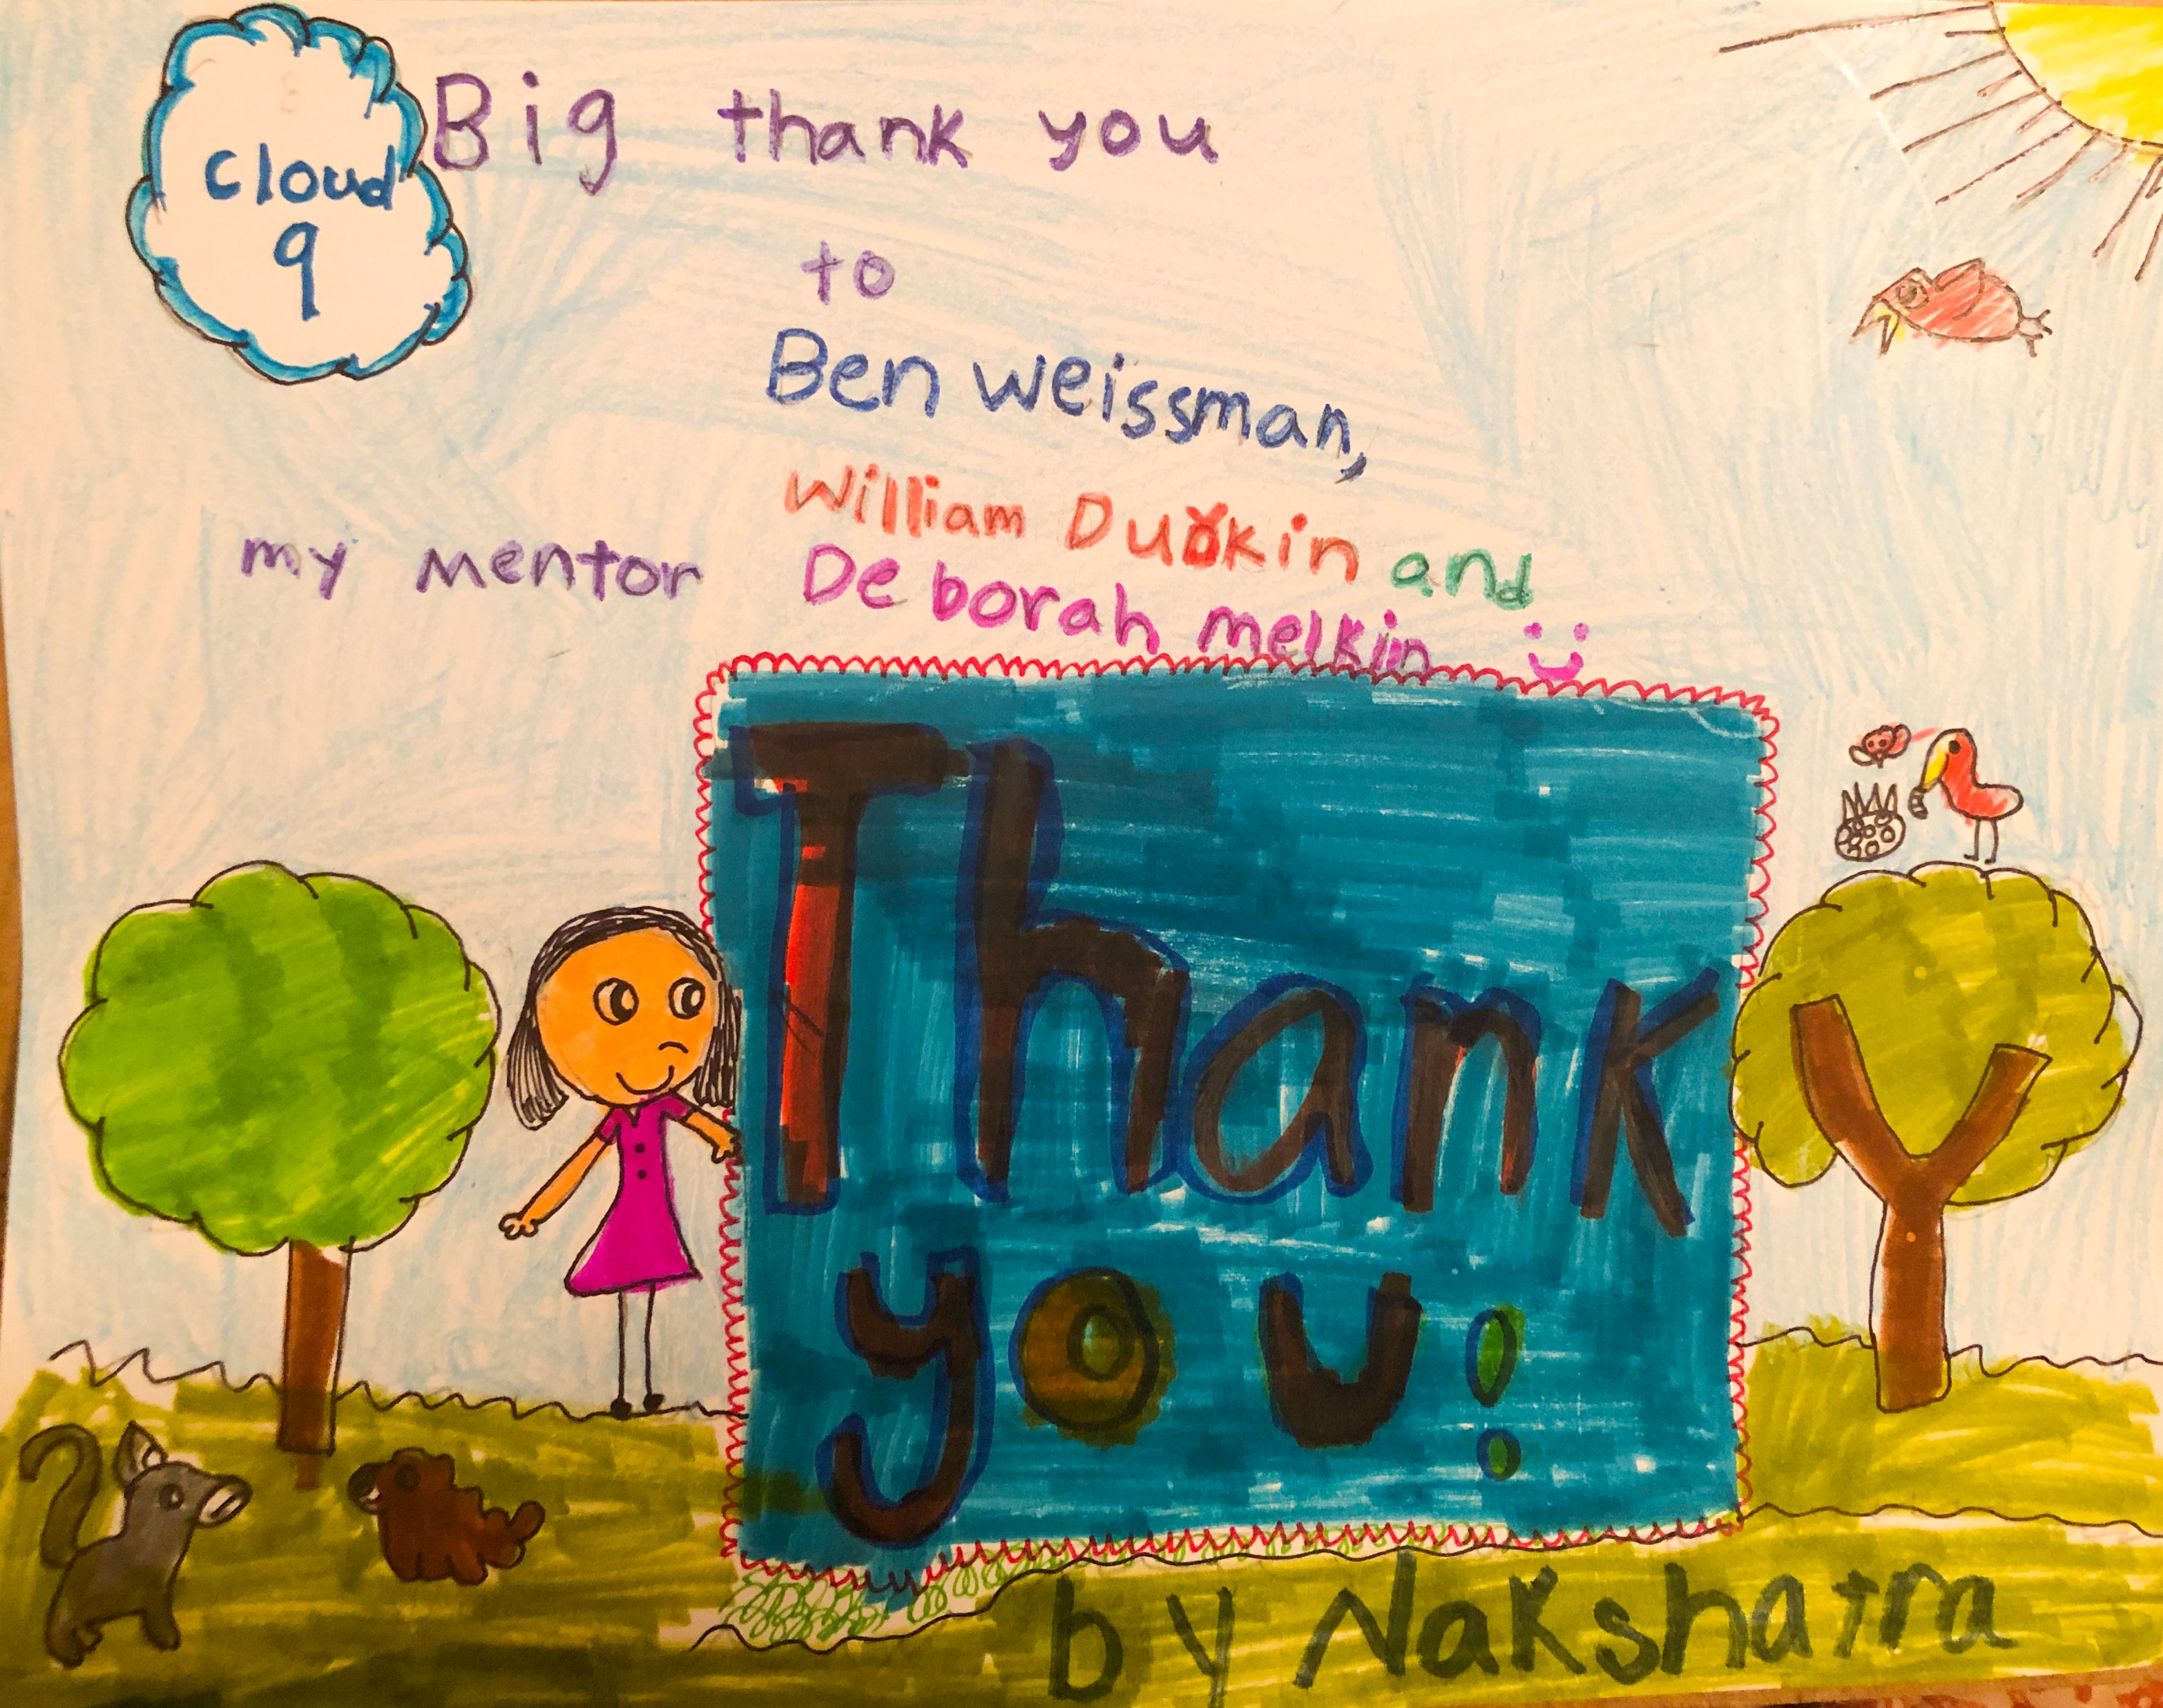 cloud
9
Big thank you
to
Ben weissman,
William Durkin and
my mentor Deborah melkin
Thank
you!
by Nakshatra